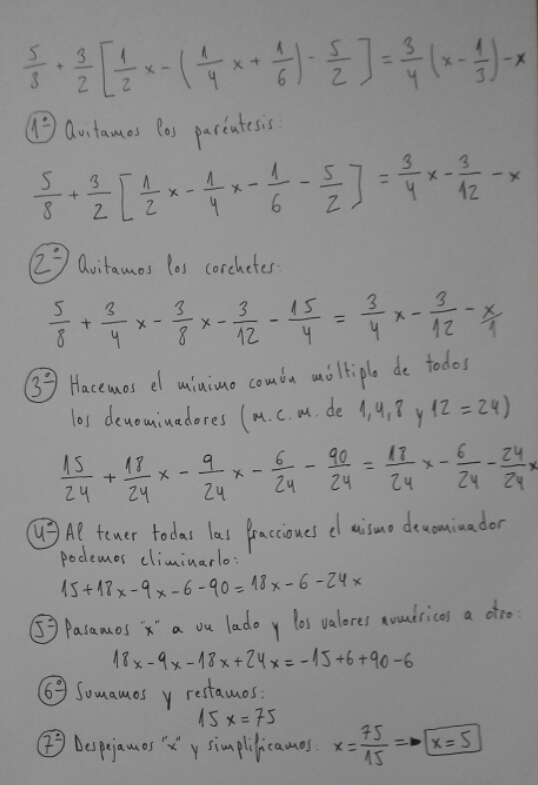 5/8 + 3/2 [ 1/2 x - ( 1/4 x + 1/6 ) - 5/2 ] = 3/4 ( x - 1/3 ) - x
1º Quitamos los paréntesis:
5/8 + 3/2 [ 1/2 x - 1/4 x - 1/6 - 5/2 ] = 3/4 x - 3/12 - x
2º Quitamos los corchetes:
5/8 + 3/4 x - 3/8 x - 3/12 - 15/4 = 3/4 x - 3/12 - x/1
3º Hacemos el mínimo común múltiplo de todos
los denominadores (m.c.m. de 1,4,8 y 12 = 24)
15/24 + 18/24 x - 9/24 x - 6/24 - 90/24 = 18/24 x - 6/24 - 24/24 x
4º Al tener todas las fracciones el mismo denominador
podemos eliminarlo:
15+18x-9x-6-90=18x-6-24x
5º Pasamos "x" a un lado y los valores numéricos a otro:
18x-9x-18x+24x=-15+6+90-6
6º Sumamos y restamos:
15x=75
7º Despejamos "x" y simplificamos: x = 75/15 => x=5